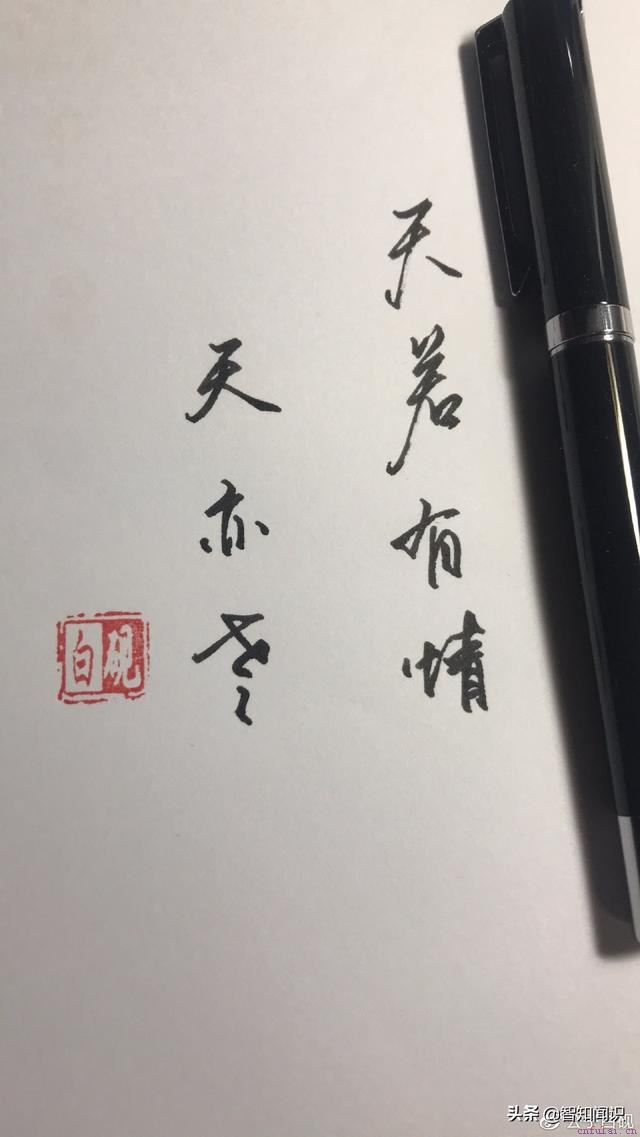 天若有情
天亦老
白硯
头条 @智知闻识
白砚